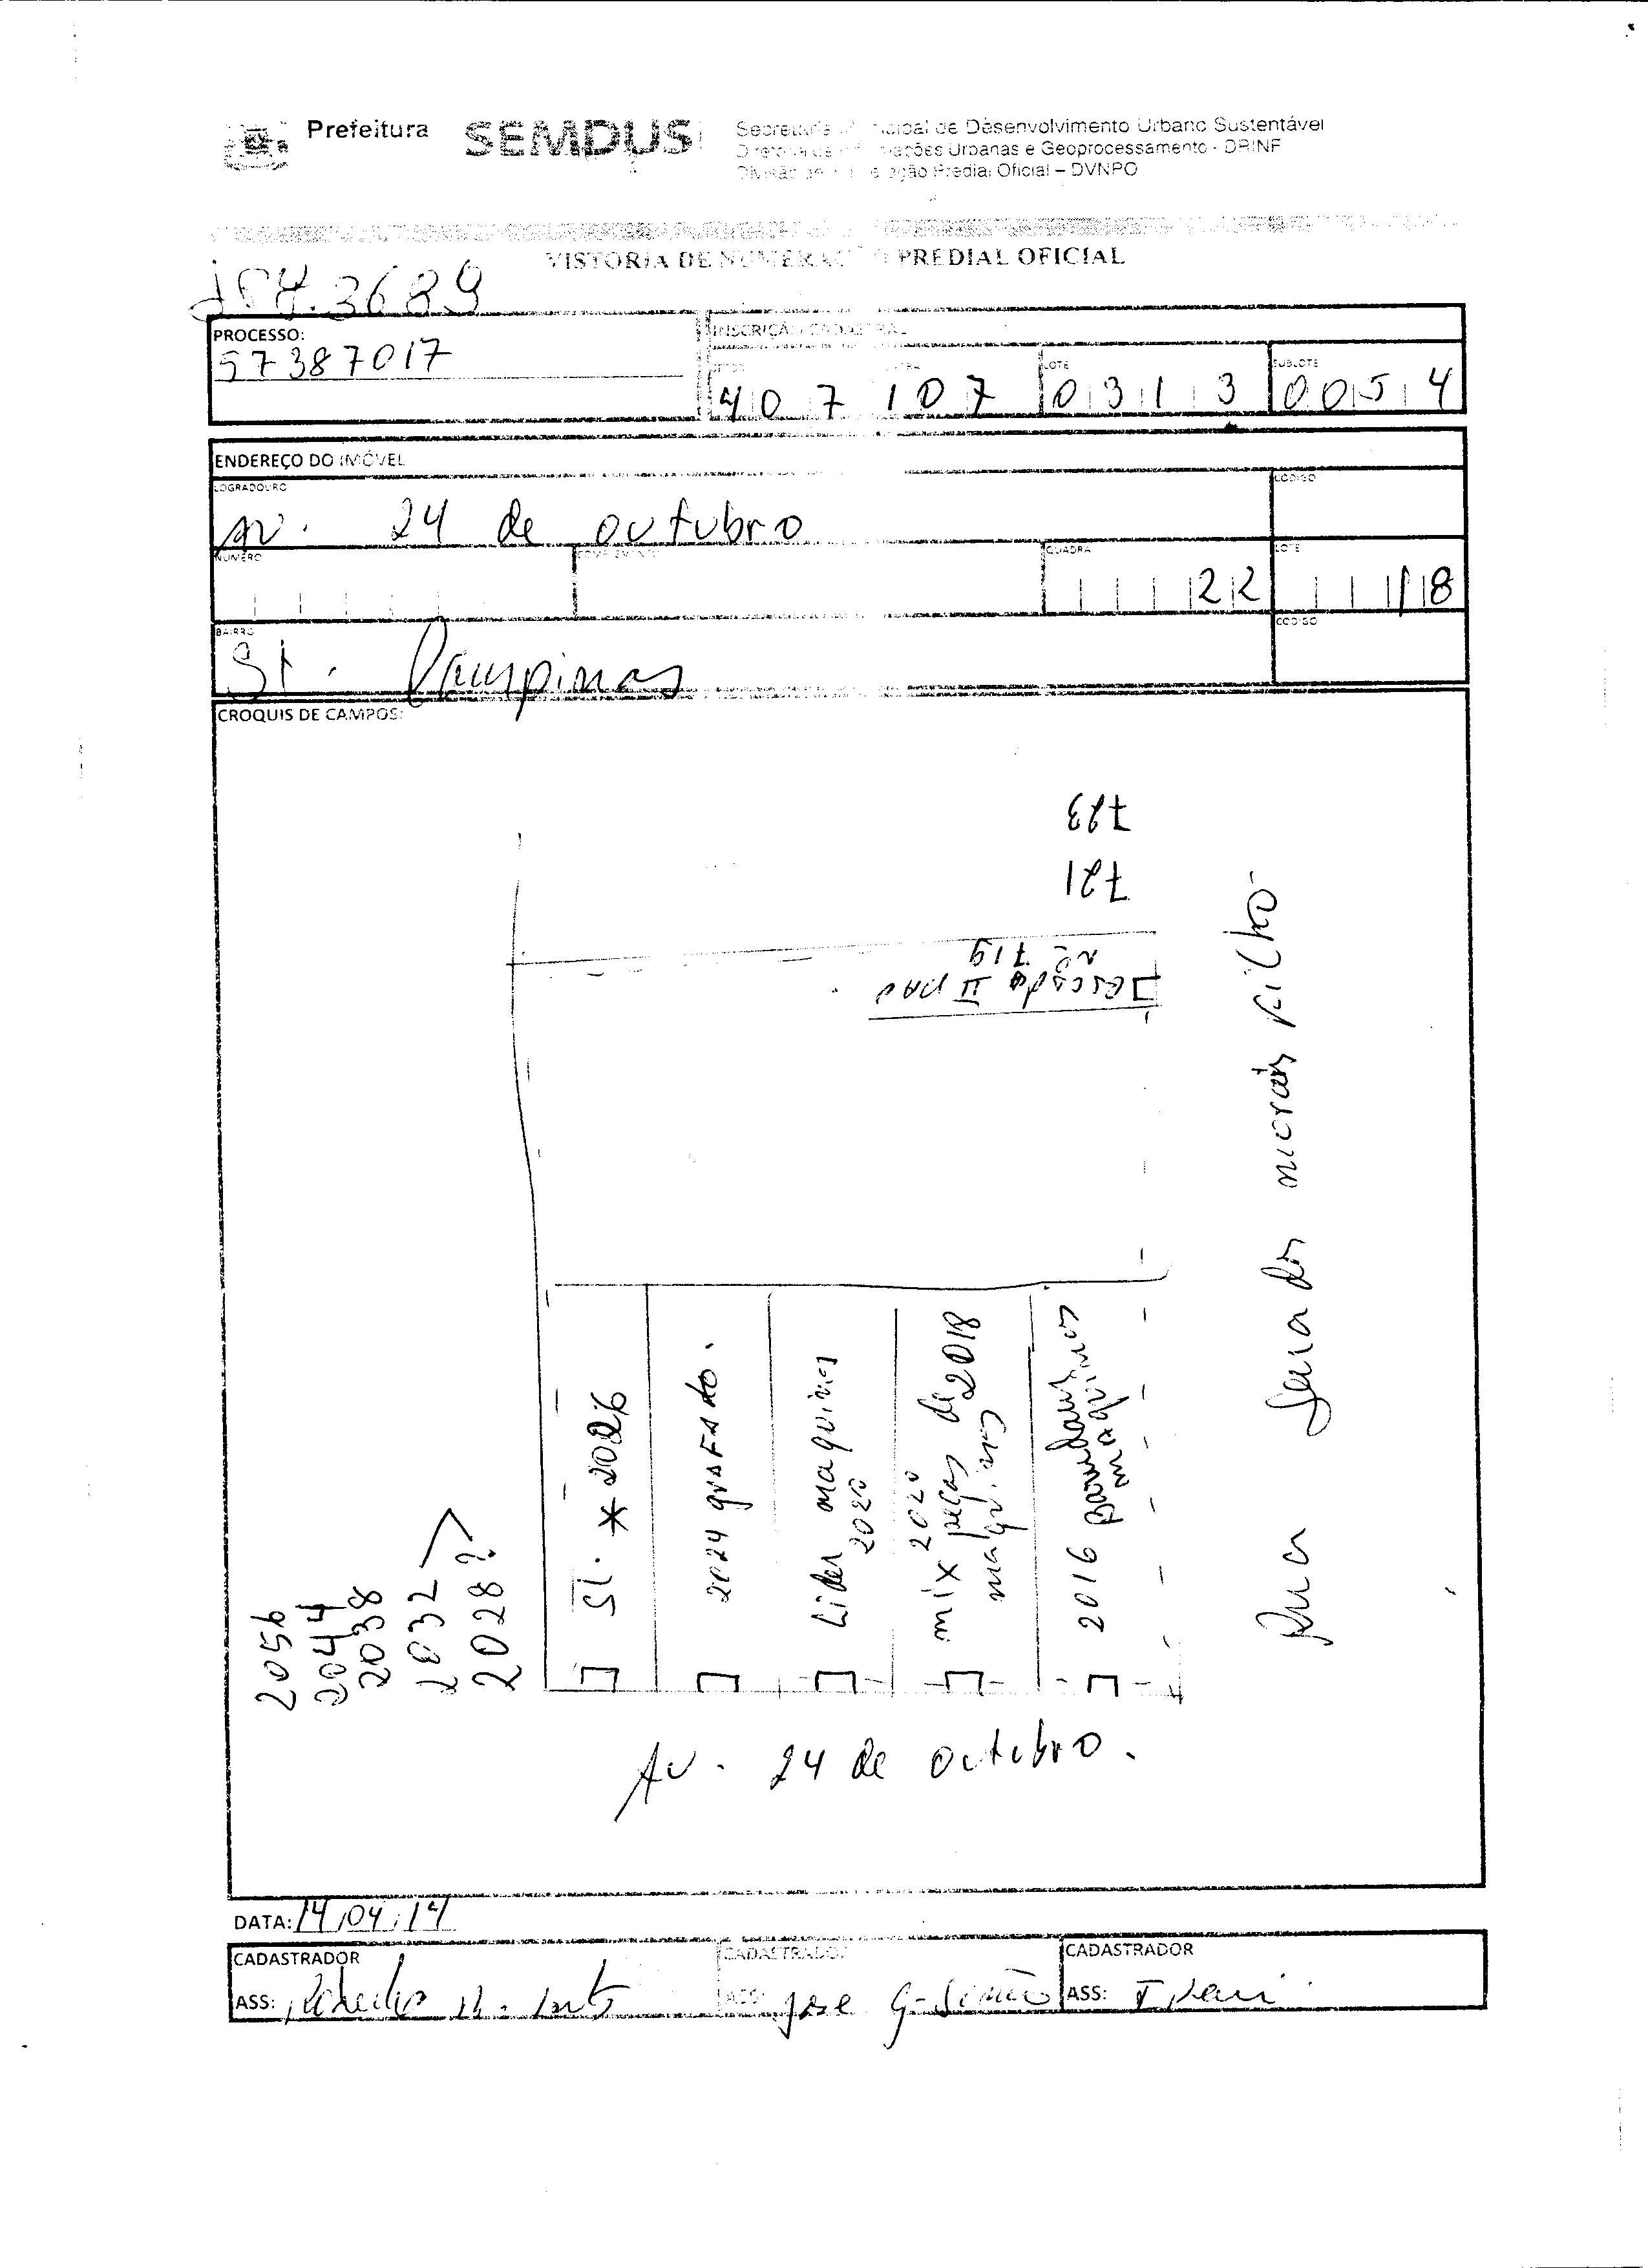 Prefeitura
SEMDUS
Desenvolvimento Urbano Sustentável
Urbanas e Geoprocessamento - DRINF
Predial Oficial – DVNPO
VISTORIA DE NUMERAÇÃO PREDIAL OFICIAL
3689
PROCESSO:
57387017
INSCRIÇÃO CADASTRAL
LOTE
SUBLOTE
407 107 0313 0054
ENDEREÇO DO IMÓVEL
LOGRADOURO
CÓDIGO
Av. 24 de outubro
NÚMERO
COMPLEMENTO
QUADRA
LOTE
22
18
BAIRRO
CÓDIGO
St. Campinas
CROQUIS DE CAMPOS:
723
721
nº 719
Escada II pav
Rua Senador morais filho
2056
2044
2038
2032
2028?
SI. * 2026
2024
Lider maquinas
2020
2020
mix peças de
maquinas
2018
2016
maquinas
Av. 24 de outubro.
DATA: 14/04/14
CADASTRADOR
CADASTRADOR
CADASTRADOR
ASS:
ASS: Jose G.
ASS: